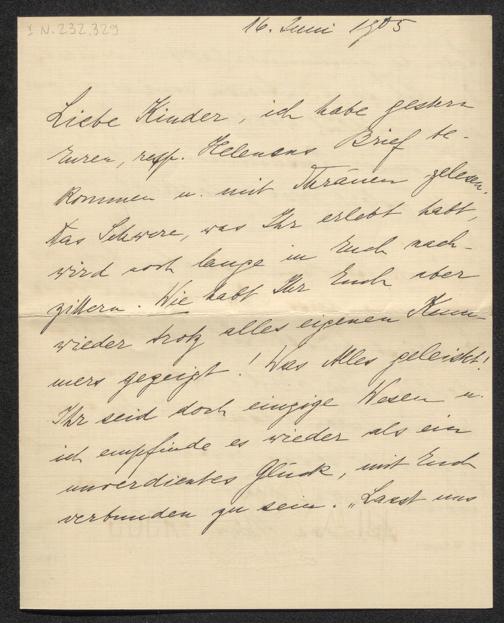 I N. 232.329
16. Juni 1905
Liebe Kinder, ich habe gestern
Euren, resp. Helenens Brief be-
kommen u. mit Thränen gelesen.
Das Schwere, was Ihr erlebt habt,
wird noch lange in Euch nach-
zittern. Wie habt Ihr Euch aber
wieder trotz alles eigenen Kum-
mers gezeigt! Was Alles geleistet!
Ihr seid doch einzige Wesen u.
ich empfinde es wieder als ein
unverdientes Glück, mit Euch
verbunden zu sein. „Lasst uns